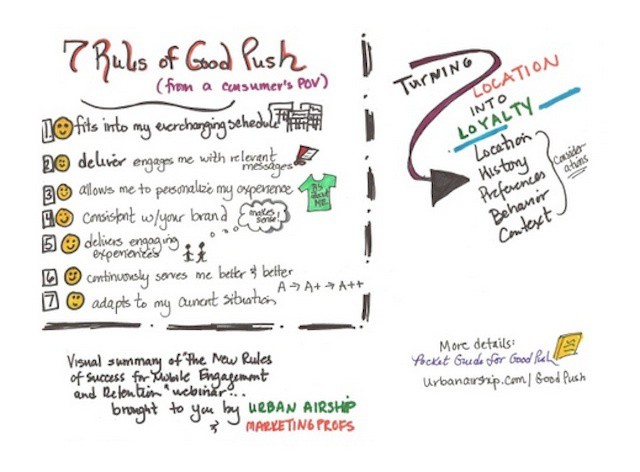 7 Rules of Good Push
(from a consumer's POV)
1 fits into my everchanging schedule
2 deliver engages me with relevant
messages
3 allows me to personalize my experience
It's
about
ME
4 Consistent w/your brand
makes
sense!
5 delivers engaging
experiences
6 continuously serves me better & better
A → A+ → A++
7 adapts to my current situation
Turning
Location
into
Loyalty
Location
History
Preferences
Behavior
Context
Consider
ations
Visual summary of "The New Rules
of success for Mobile Engagement
and Retention" webinar...
brought to you by URBAN AIRSHIP
& MARKETINGPROFS
More details:
Pocket Guide for Good Push
urbanairship.com/GoodPush